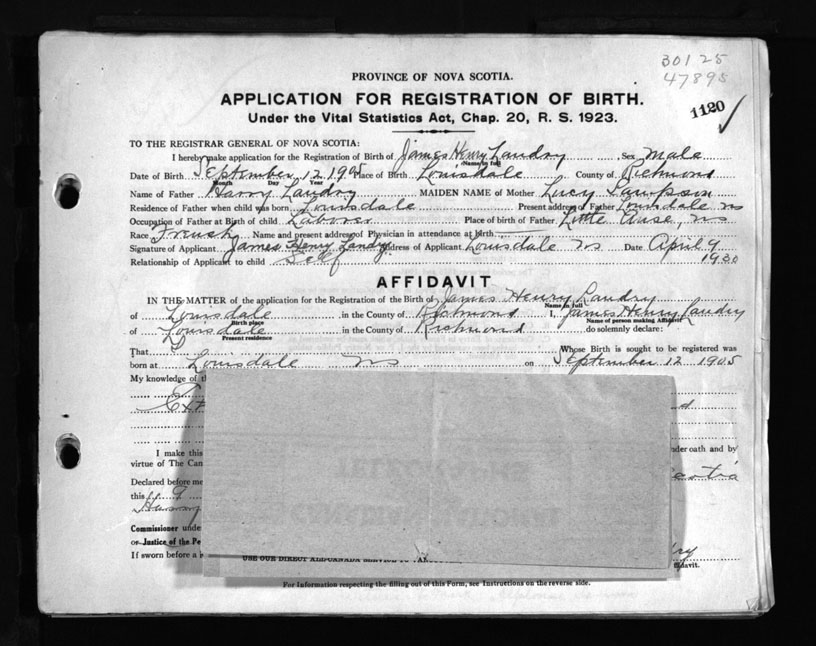 30125
47895
1120
PROVINCE OF NOVA SCOTIA.
APPLICATION FOR REGISTRATION OF BIRTH.
Under the Vital Statistics Act, Chap. 20, R. S. 1923.
TO THE REGISTRAR GENERAL OF NOVA SCOTIA:
I hereby make application for the Registration of Birth of James Henry Landry Sex Male
Name in full
Date of Birth September 12 1905 Place of Birth Louisdale County of Richmond
Month Day Year
Name of Father Harry Landry MAIDEN NAME of Mother Lucy Sampson
Residence of Father when child was born Louisdale Present address of Father Louisdale NS
Occupation of Father at Birth of child Laborer Place of birth of Father Little Anse, NS
Race French Name and present address of Physician in attendance at birth
Signature of Applicant James Henry Landry Address of Applicant Louisdale NS Date April 9
Relationship of Applicant to child Self 1930
AFFIDAVIT
IN THE MATTER of the application for the Registration of the Birth of James Henry Landry
Name in full
of Louisdale in the County of Richmond I, James Henry Landry
Birth place Name of person making Affidavit
of Louisdale in the County of Richmond do solemnly declare:
Present residence
That I Whose Birth is sought to be registered was
born at Louisdale NS on September 12 1905
My knowledge of th
I make this under oath and by
virtue of The Can
Declared before me
this 9
Commissioner unde
or Justice of the Pe
If sworn before a
fidavit.
USE OUR DIRECT ALL-CANADA SERVICE TO
For Information respecting the filling out of this Form, see Instructions on the reverse side.